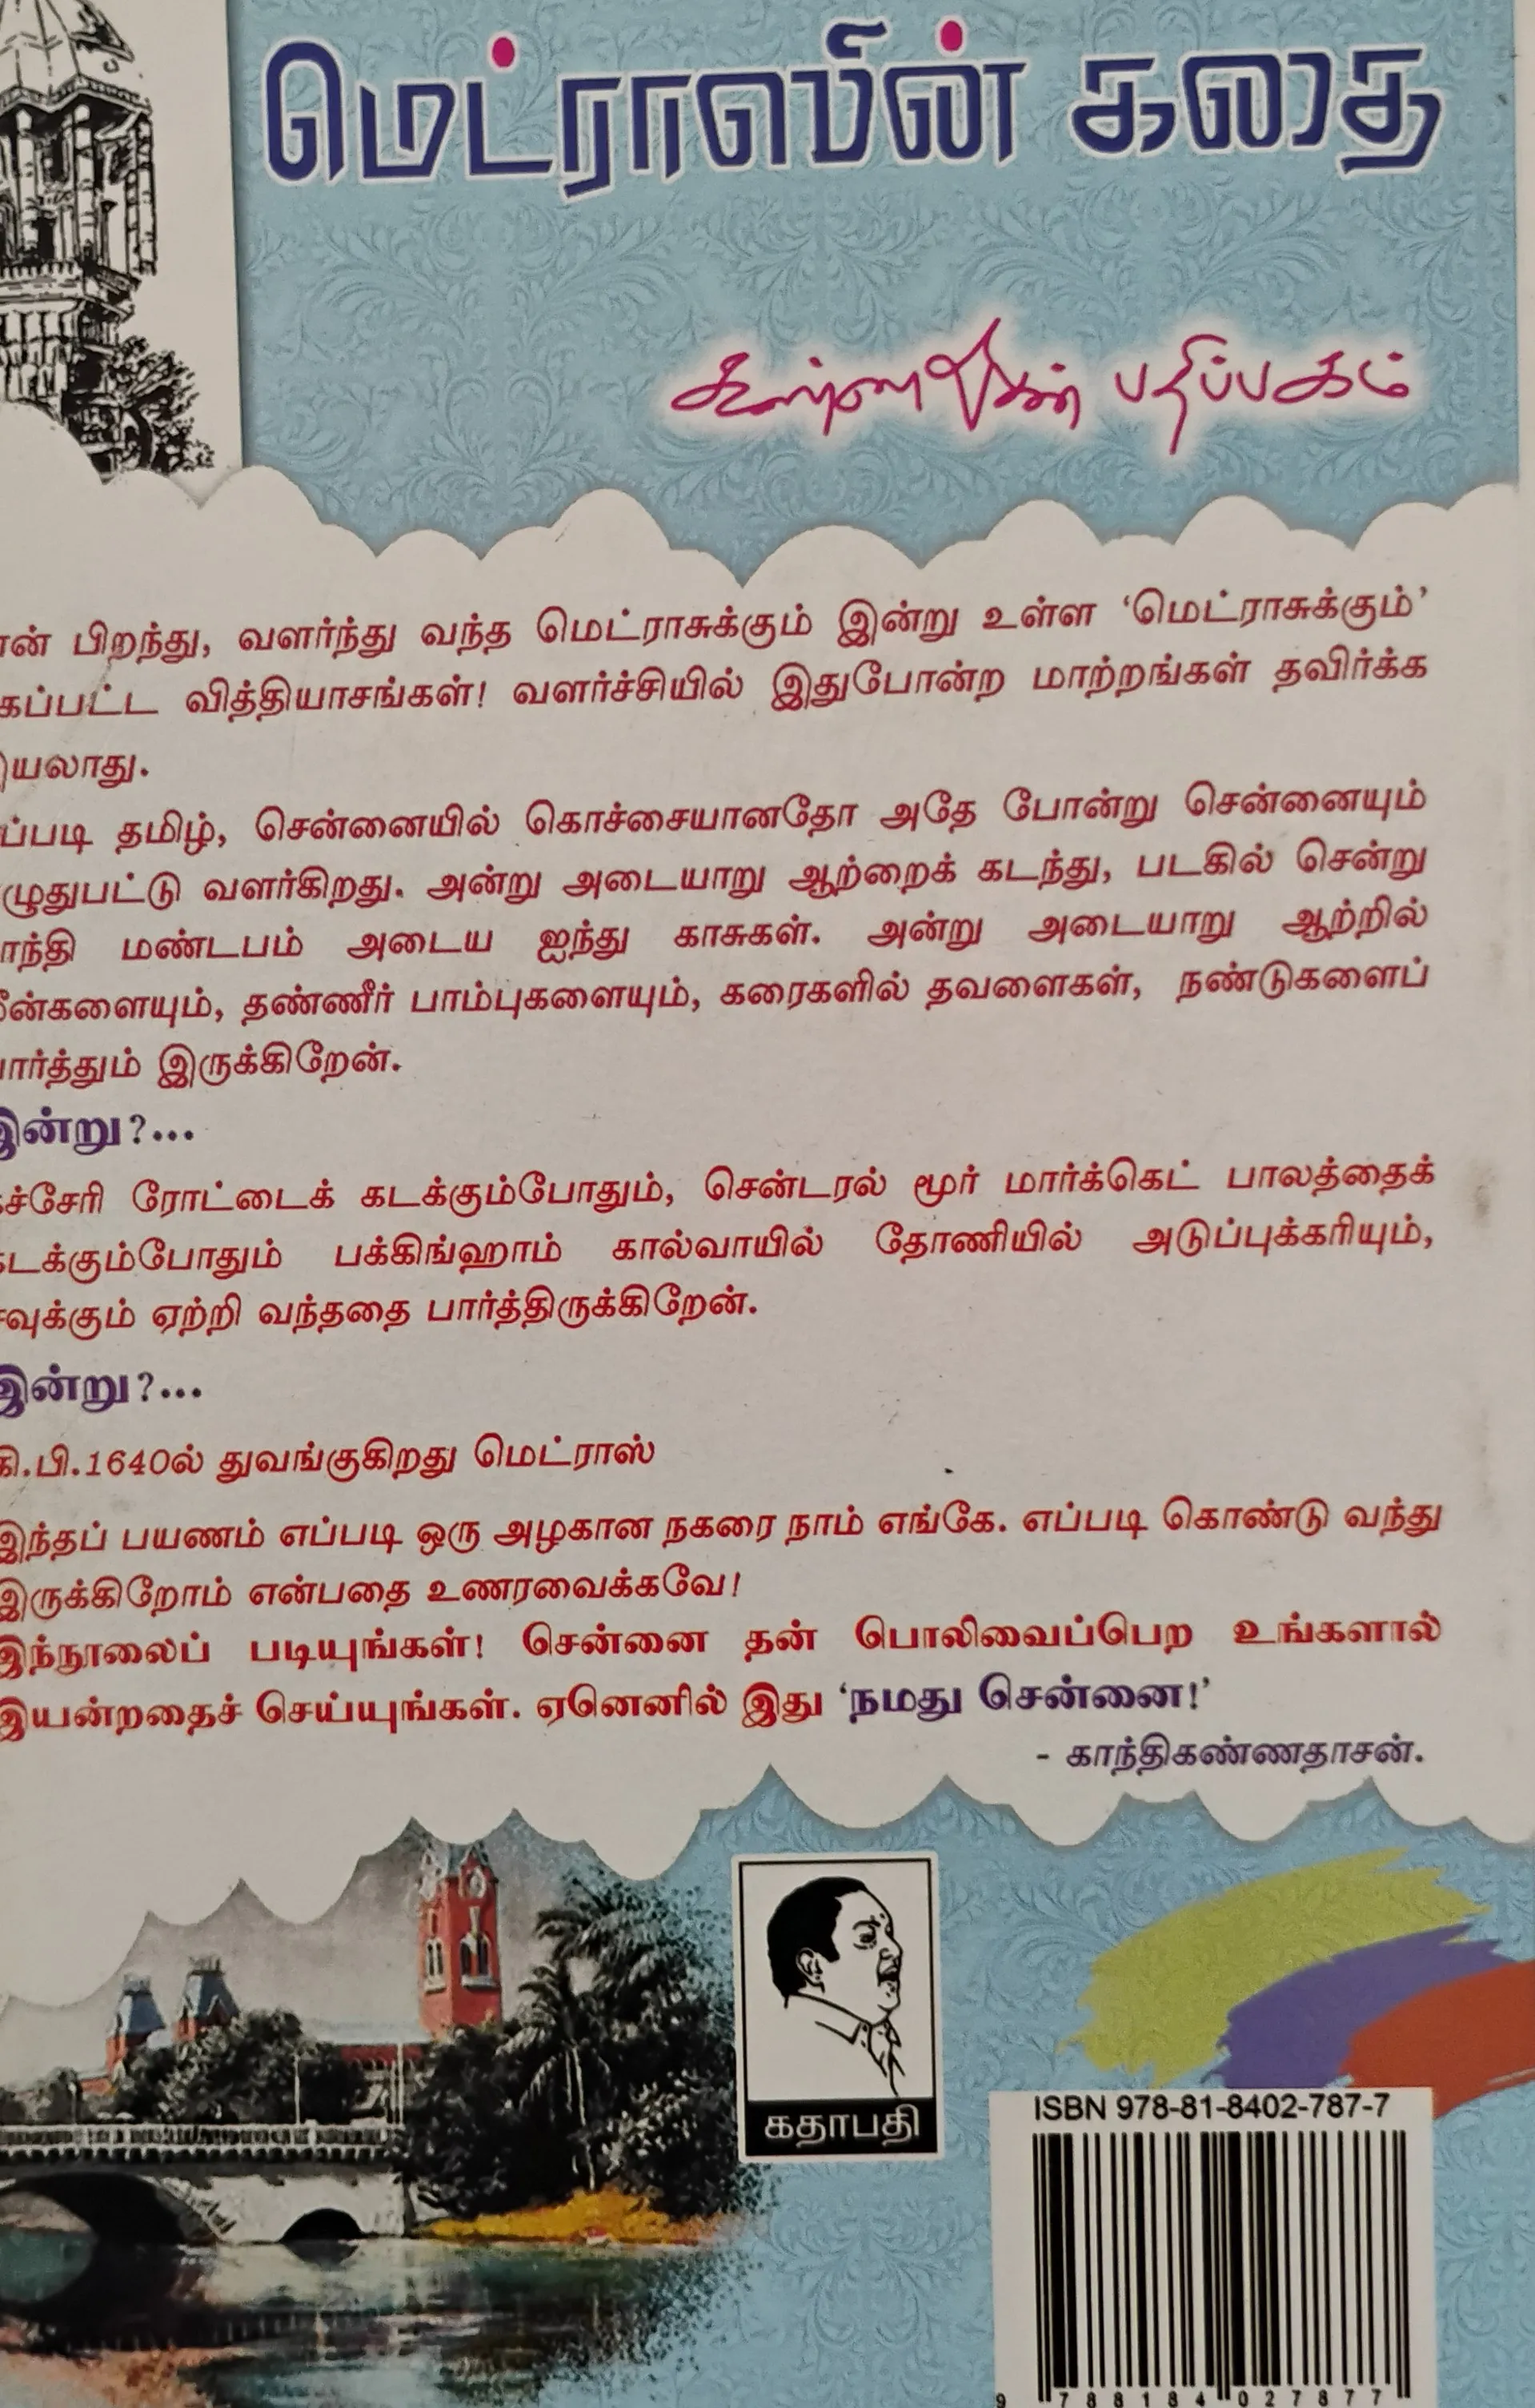 மெட்ராஸின் கதை
கண்ணதாசன் பதிப்பகம்
ான் பிறந்து, வளர்ந்து வந்த மெட்ராசுக்கும் இன்று உள்ள ‘மெட்ராசுக்கும்’
கப்பட்ட வித்தியாசங்கள்! வளர்ச்சியில் இதுபோன்ற மாற்றங்கள் தவிர்க்க
இயலாது.
ப்படி தமிழ், சென்னையில் கொச்சையானதோ அதே போன்று சென்னையும்
ழுதுபட்டு வளர்கிறது. அன்று அடையாறு ஆற்றைக் கடந்து, படகில் சென்று
ாந்தி மண்டபம் அடைய ஐந்து காசுகள். அன்று அடையாறு ஆற்றில்
மீன்களையும், தண்ணீர் பாம்புகளையும், கரைகளில் தவளைகள், நண்டுகளைப்
பார்த்தும் இருக்கிறேன்.
இன்று?...
கச்சேரி ரோட்டைக் கடக்கும்போதும், சென்டரல் மூர் மார்க்கெட் பாலத்தைக்
கடக்கும்போதும் பக்கிங்ஹாம் கால்வாயில் தோணியில் அடுப்புக்கரியும்,
சவுக்கும் ஏற்றி வந்ததை பார்த்திருக்கிறேன்.
இன்று?...
கி.பி.1640ல் துவங்குகிறது மெட்ராஸ்
இந்தப் பயணம் எப்படி ஒரு அழகான நகரை நாம் எங்கே. எப்படி கொண்டு வந்து
இருக்கிறோம் என்பதை உணரவைக்கவே!
இந்நூலைப் படியுங்கள்! சென்னை தன் பொலிவைப்பெற உங்களால்
இயன்றதைச் செய்யுங்கள். ஏனெனில் இது ‘நமது சென்னை!’
- காந்திகண்ணதாசன்.
கதாபதி
ISBN 978-81-8402-787-7
9 788184 027877